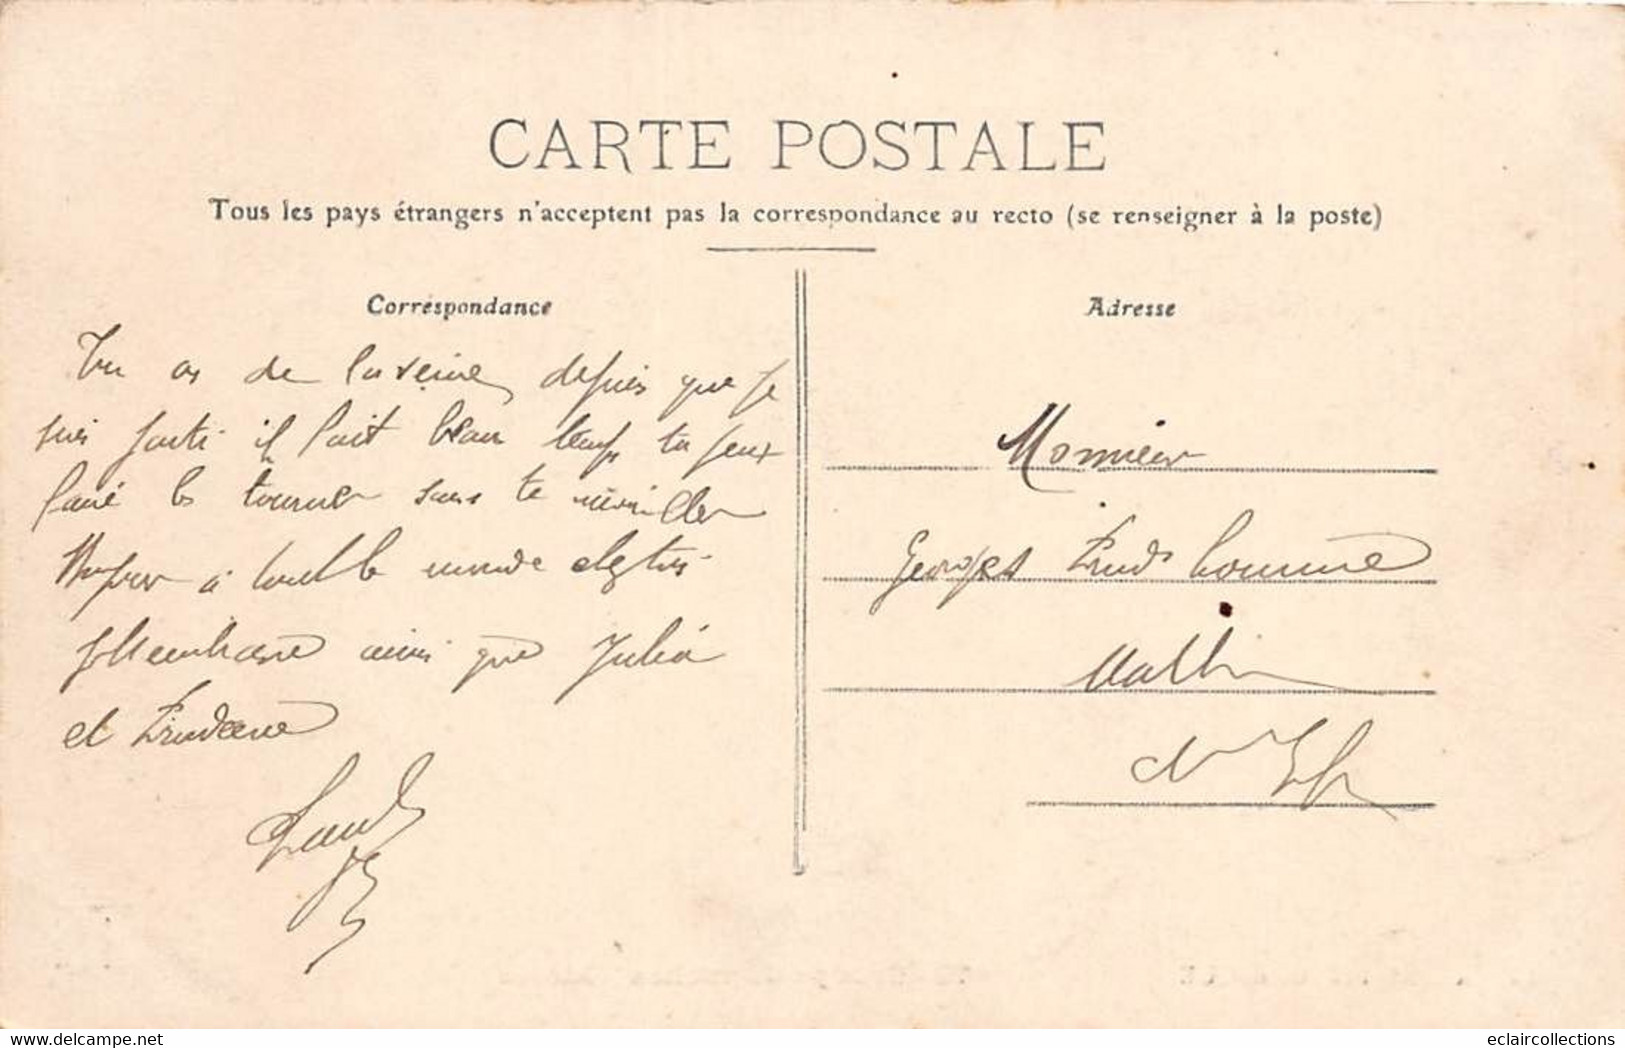 CARTE POSTALE
Tous les pays étrangers n'acceptent pas la correspondance au recto (se renseigner à la poste)
Correspondance
Adresse
Tu as de la veine depuis que je
suis parti il fait beau temps tu peux
faire les tourner sans te mouiller
à tout le monde
ainsi que Julia
et Prudence
Monsieur
Georges Prud'homme